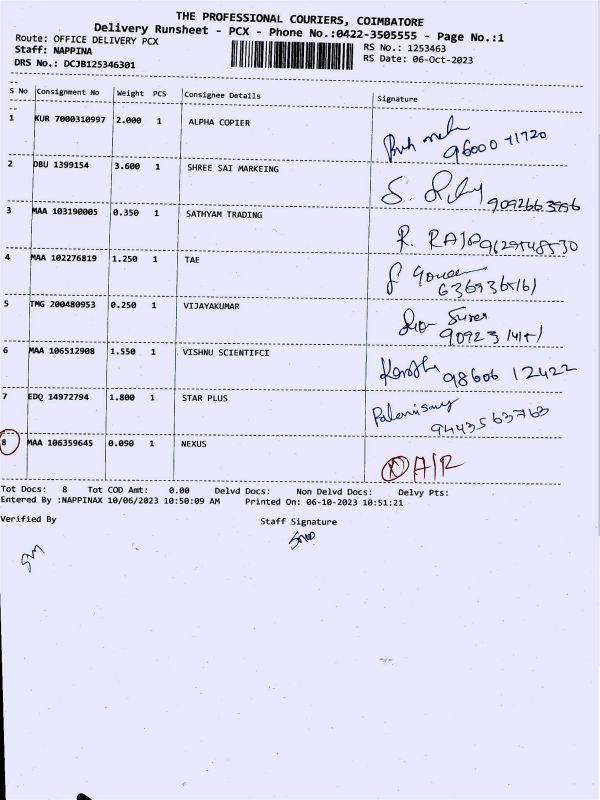 THE PROFESSIONAL COURIERS, COIMBATORE
Delivery Runsheet - PCX - Phone No.:0422-3505555 - Page No.:1
Route: OFFICE DELIVERY PCX RS No.: 1253463
Staff: NAPPINA RS Date: 06-Oct-2023
DRS No.: DCJB125346301
S No Consignment No Weight PCS Consignee Details Signature
1 KUR 7000310997 2.000 1 ALPHA COPIER
96000 71720
2 DBU 1399154 3.600 1 SHREE SAI MARKEING
S.
3 MAA 103190005 0.350 1 SATHYAM TRADING
R. RAJA
4 MAA 102276819 1.250 1 TAE
5 TMG 200480953 0.250 1 VIJAYAKUMAR
6 MAA 106512908 1.550 1 VISHNU SCIENTIFCI
98606 12422
7 EDQ 14972794 1.800 1 STAR PLUS
Palanisamy
9443563763
8 MAA 106359645 0.090 1 NEXUS
A/R
Tot Docs: 8 Tot COD Amt: 0.00 Delvd Docs: Non Delvd Docs: Delvy Pts:
Entered By :NAPPINAX 10/06/2023 10:50:09 AM Printed On: 06-10-2023 10:51:21
Verified By Staff Signature